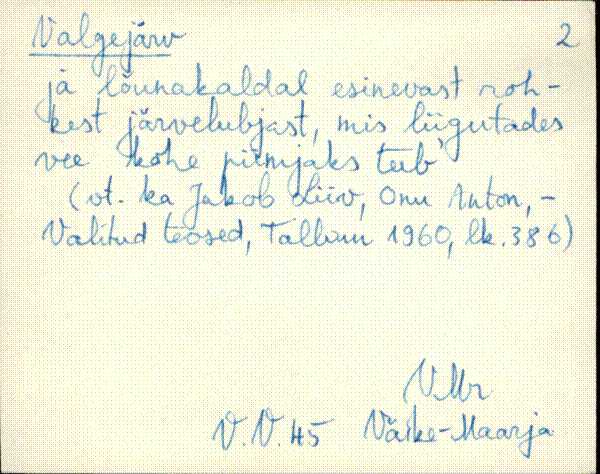 Valgejärv 2
ja lõunakaldal esinevast roh-
kest järvelubjast, mis liigutades
vee kohe piimjaks teeb
(vt. ka Jakob Liiv, Onu Anton, -
Valitud teosed, Tallinn 1960, lk. 386)
V.Mr
V.V. 45 Väike-Maarja